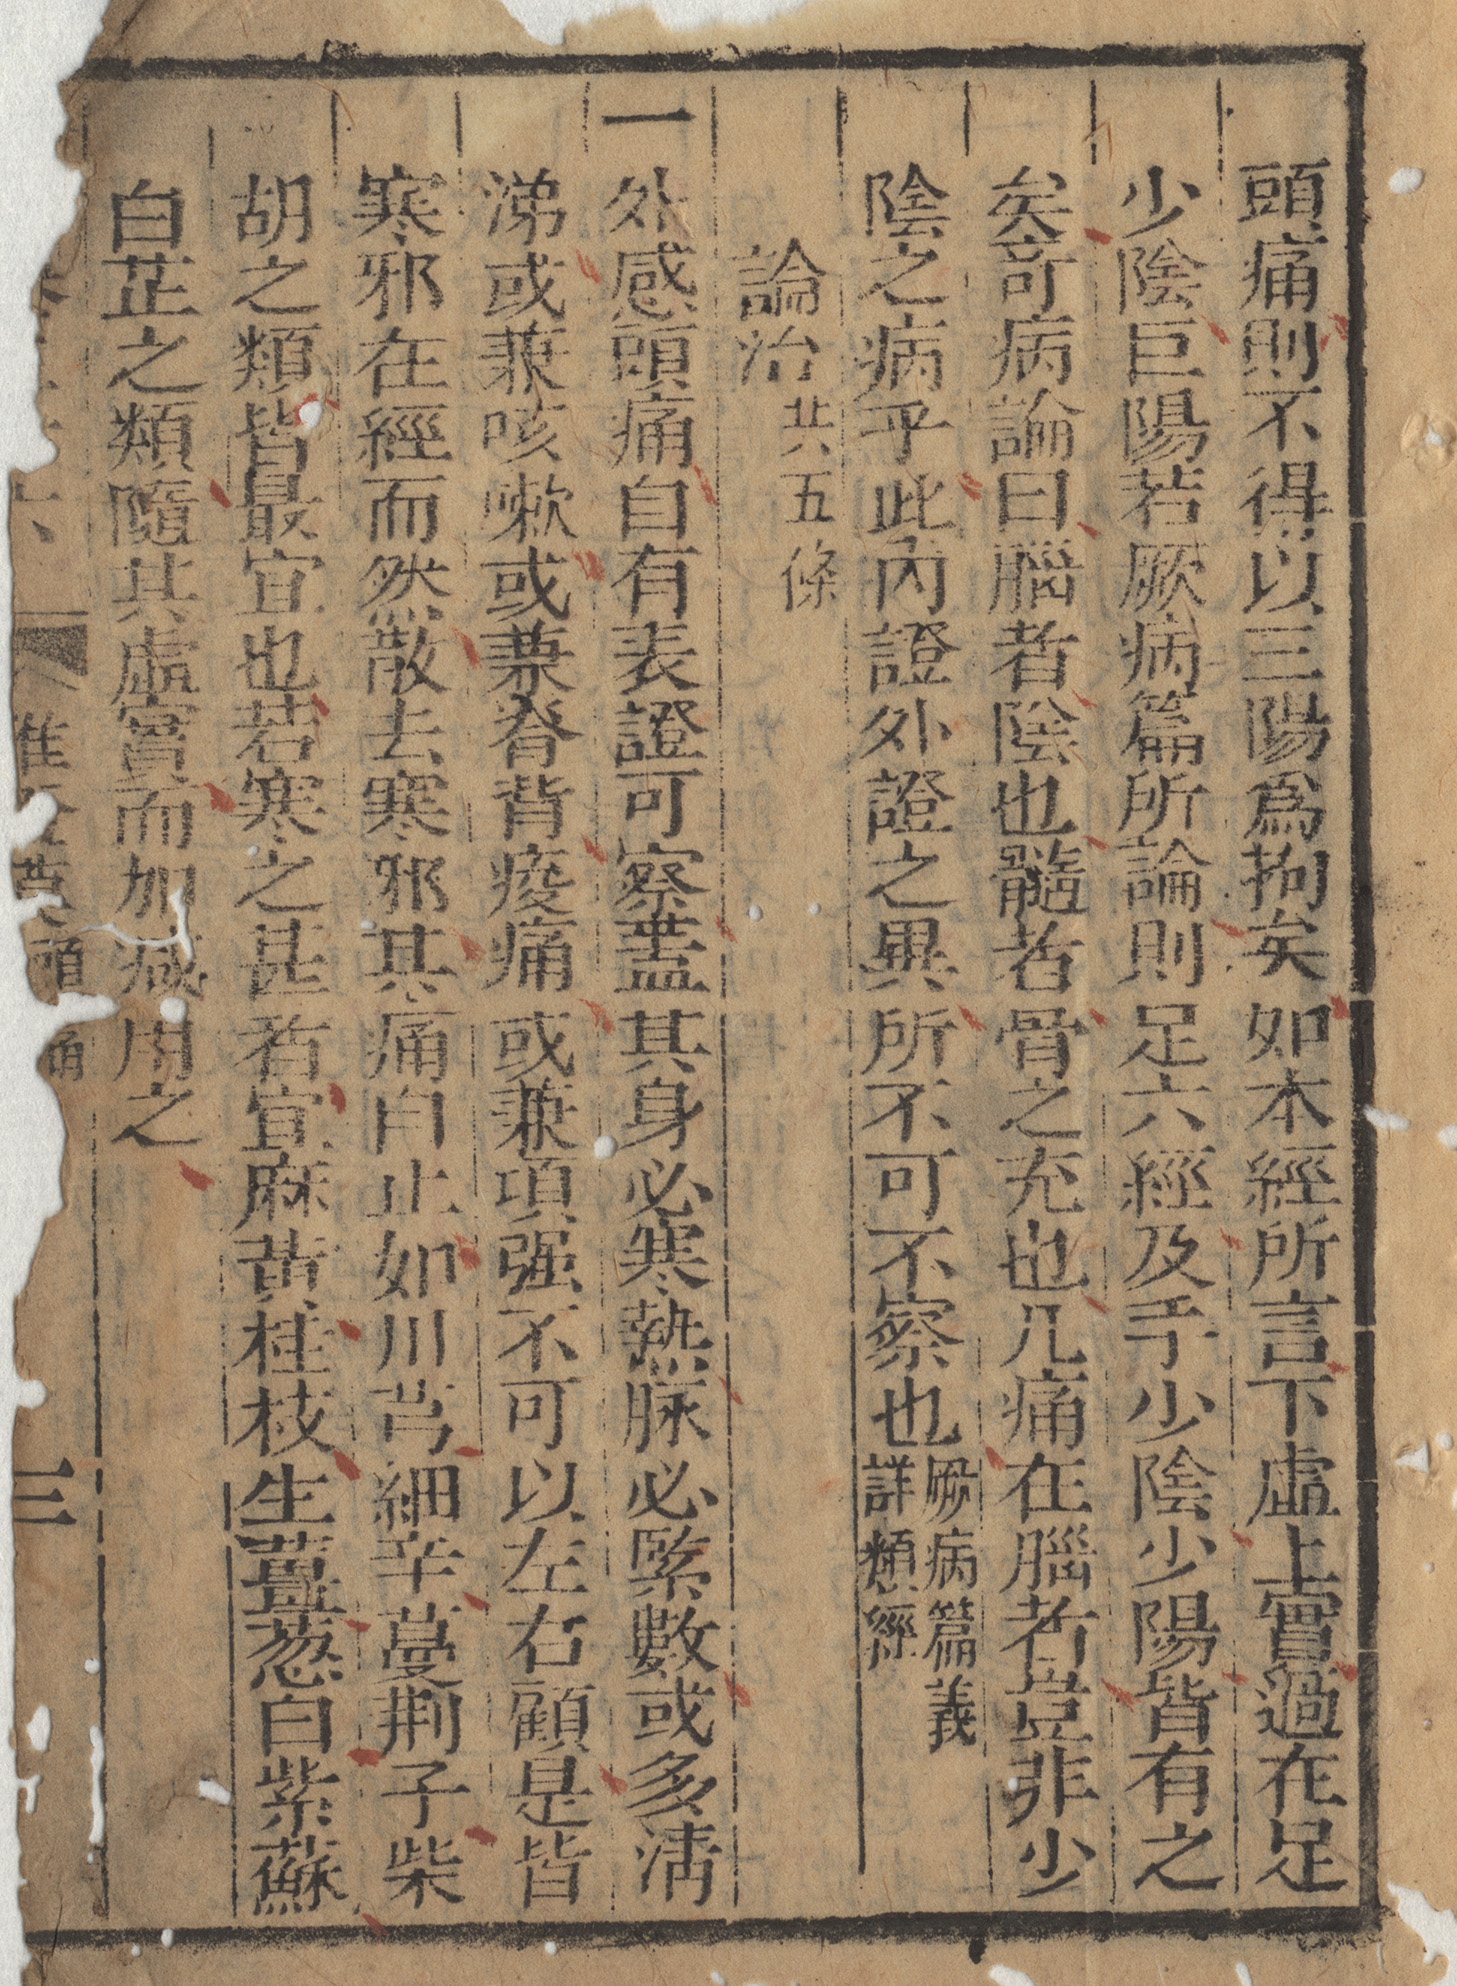 頭痛則不得以三陽爲拘矣如本經所言下虛上實過在足
少陰巨陽若厥病篇所論則足六經及手少陰少陽皆有之
矣奇病論曰腦者陰也髓者骨之充也凡痛在腦者豈非少
陰之病乎此內證外證之異所不可不察也厥病篇義詳類經
論治共五條
一外感頭痛自有表證可察葢其身必寒熱脉必緊數或多淸
涕或兼咳嗽或兼脊背痠痛或兼項强不可以左右顧是皆
寒邪在經而然散去寒邪其痛自止如川芎細辛蔓荆子柴
胡之類皆最宜也若寒之甚者宜麻黄桂枝生薑葱白紫蘇
白芷之類隨其虛實而加減用之
頭痛
三